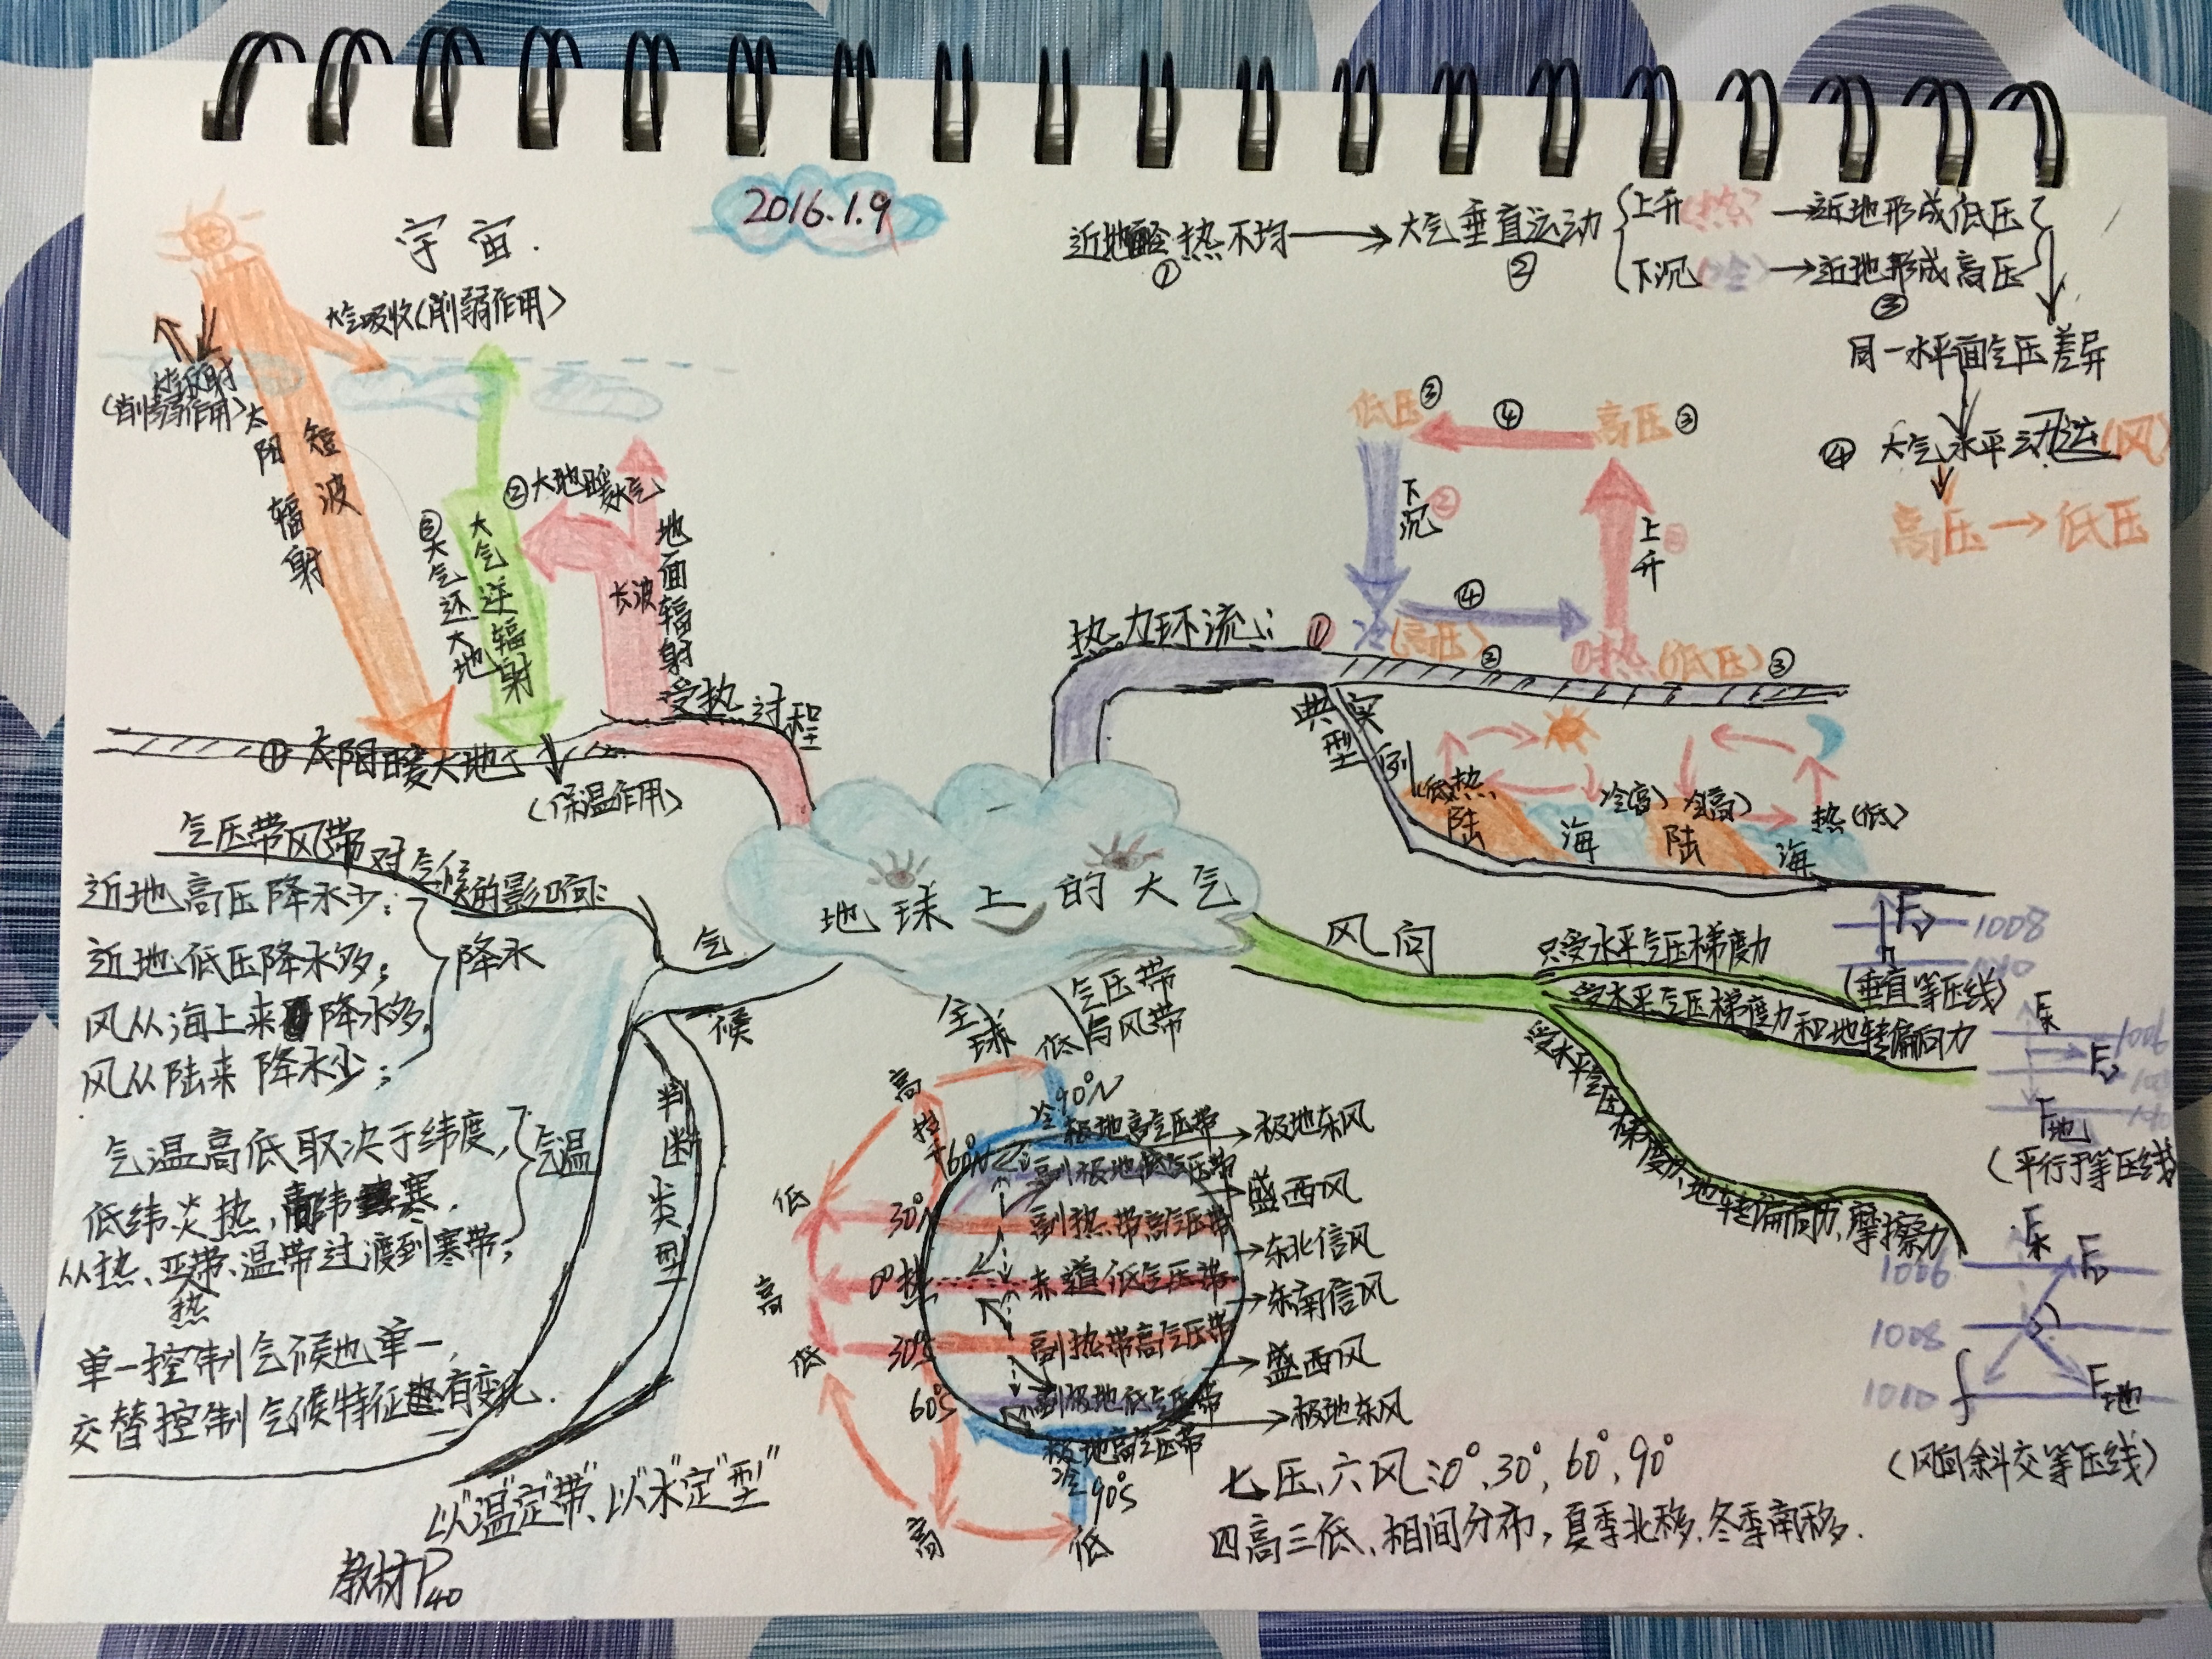 2016.1.9
宇宙.
大气吸收(削弱作用)
大气反射
(削弱作用)
太阳辐射
短波
②大地暖大气
③大气还大地
大气逆辐射
长波
地面辐射
受热过程
①太阳暖大地
(保温作用)
近地面冷热不均→大气垂直运动
①
②
上升(热)→近地形成低压
下沉(冷)→近地形成高压
③
同一水平面气压差异
④ 大气水平运动(风)
高压→低压
低压③
④
高压③
下沉②
上升②
④
热力环流:
①冷(高压)
③
①热(低压)③
典型
实例
(低)热
陆
海
冷(高)
冷(高)
陆
海
热(低)
地球上的大气
气压带风带对气候的影响:
近地高压降水少;
近地低压降水多;
风从海上来降水多,
风从陆来降水少;
降水
气温高低取决于纬度,
低纬炎热,高纬寒.
从热、亚热带、温带过渡到寒带;
气温
单一控制气候也单一,
交替控制气候特征也有变化.
气候
判断类型
以"温"定"带"、以"水"定"型"
教材P40
全球
气压带与风带
低
高
冷
90°N
极地高气压带→极地东风
60°N
副极地低气压带→盛西风
低
30°N
副热带高气压带
→东北信风
高
0°热
赤道低气压带
→东南信风
低
30°S
副热带高气压带
→盛西风
60°S
副极地低气压带
→极地东风
极地高气压带
冷
90°S
高
低
七压、六风:0°,30°,60°,90°
四高三低、相间分布,夏季北移.冬季南移.
风向
只受水平气压梯度力
(垂直等压线)
1008
受水平气压梯度力和地转偏向力
1006
F水
F地
(平行于等压线)
受水平气压梯度力、地转偏向力、摩擦力
F水
1006
1008
1010
f
F地
(风向斜交等压线)